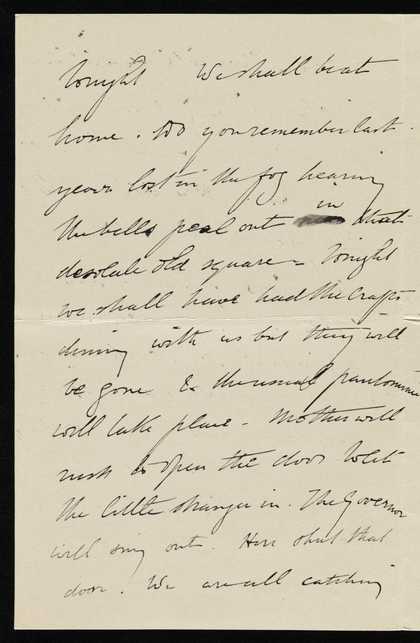 tonight We shall be at
home. Do you remember last
year lost in the fog hearing
the bells peal out in that
desolate old square - Tonight
we shall have had the Crafts
dining with us but they will
be gone & the usual pantomime
will take place - Mother will
rush to open the door to let
the little stranger in. The Governor
will sing out. Here shut that
door. We are all catching